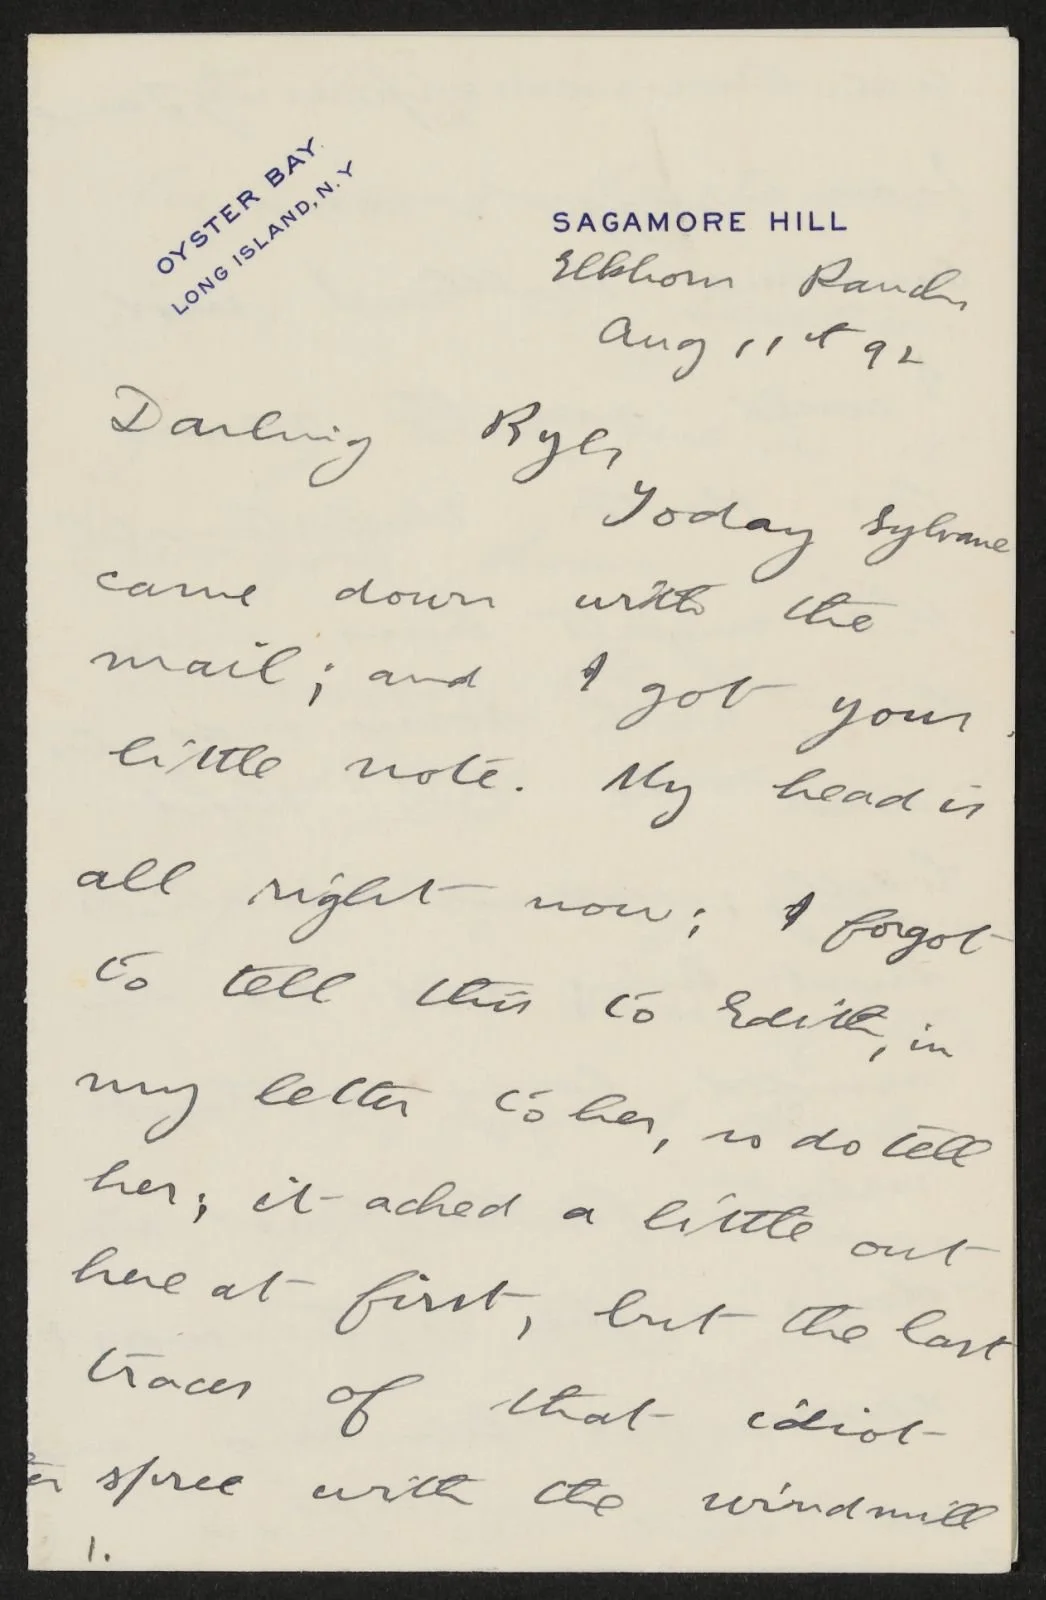 OYSTER BAY.
LONG ISLAND, N.Y
SAGAMORE HILL
Elkhorn Ranch
Aug 11th 92
Darling Bye,
Today Sylvane
came down with the
mail; and I got your
little note. My head is
all right now; I forgot
to tell this to Edith, in
my letter to her, so do tell
her; it ached a little out
here at first, but the last
traces of that idiot
spree with the windmill
1.